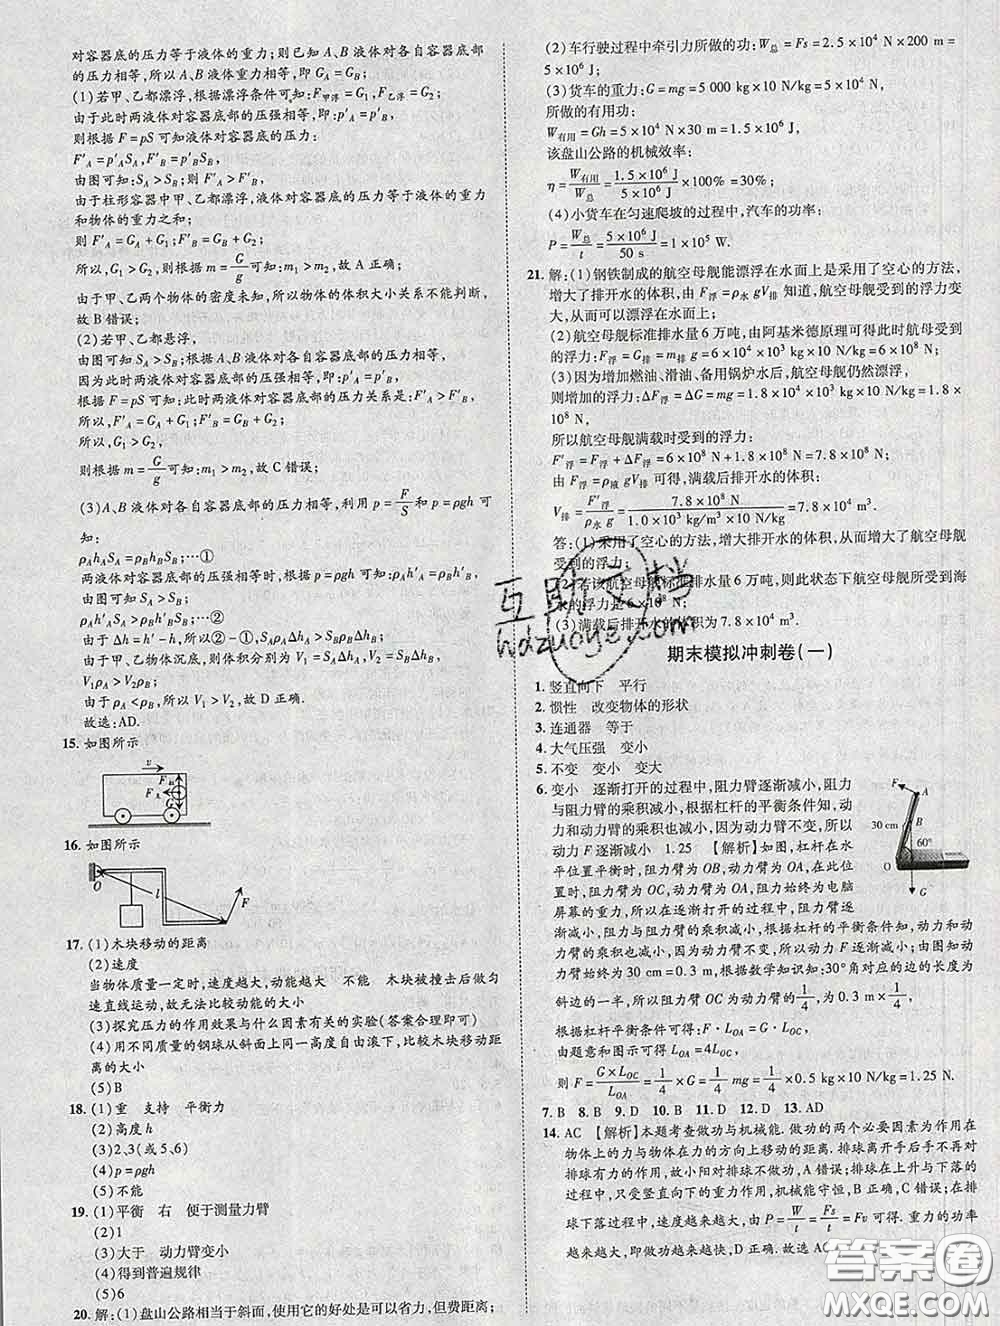 对容器底的压力等于液体的重力;则已知A、B液体对各自容器底部
的压力相等,所以A、B液体重力相等,即G_A=G_B。
(1)若甲、乙都漂浮,根据漂浮条件可知:F_甲浮=G_1,F_乙浮=G_2。
由于此时两液体对容器底部的压强相等,即:p'_A=p'_B,
则根据F=pS可知液体对容器底的压力:
F'_A=p'_A S_A,F'_B=p'_B S_B,
由图可知:S_A>S_B;则:F'_A>F'_B,
由于柱形容器中甲、乙都漂浮,液体对容器底的压力等于液体的重力
和物体的重力之和;
则F'_A=G_A+G_1;F'_B=G_B+G_2,
所以,G_1>G_2,则根据m=G/g可知:m_1>m_2,故A正确;
由于甲、乙两个物体的密度未知,所以物体的体积大小关系不能判断,
故B错误;
(2)若甲、乙都悬浮,
由图可知S_A>S_B;根据A、B液体对各自容器底部的压力相等,
因为此时两液体对容器底部的压强相等,即:p'_A=p'_B,
根据F=pS可知:此时两液体对容器底的压力关系是:F'_A>F'_B,
所以,F'_A=G_A+G_1;F'_B=G_B+G_2,
所以,G_1>G_2,
则根据m=G/g可知:m_1>m_2,故C错误;
(3)A、B液体对各自容器底部的压力相等,利用p=F/S和p=ρgh可
知:
ρ_A h_A S_A=ρ_B h_B S_B;…①
两液体对容器底部的压强相等,利用p=ρgh可知:ρ_A h'_A=ρ_B h'_B,
ρ_A h'_A S_A>ρ_B h'_B S_B;…②
由于Δh=h'-h,所以②-①,S_Aρ_AΔh_A>S_Bρ_BΔh_B,
由于甲、乙物体沉底,则体积分别为V_1=S_AΔh_A、V_2=S_BΔh_B,
V_1ρ_A>V_2ρ_B;
由于ρ_A<ρ_B,所以V_1>V_2,故D正确.
故选:AD.
15. 如图所示
v
F
G
16. 如图所示
O
l
F
17. (1)木块移动的距离
(2)速度
当物体质量一定时,速度越大,动能越大 不能 木块被撞击后做匀
速直线运动,故无法比较动能的大小
(3)探究压力的作用效果与什么因素有关的实验(答案合理即可)
(4)用不同质量的钢球从斜面上同一高度自由滚下,比较木块移动距
离的大小
(5)B
18. (1)重 支持 平衡力
(2)高度h
(3)2、3(或5、6)
(4)p=ρgh
(5)不能
19. (1)平衡 右 便于测量力臂
(2)1
(3)大于 动力臂变小
(4)得到普遍规律
(5)6
20. 解:(1)盘山公路相当于斜面,使用它的好处是可以省力,但费距离;
(2)车行驶过程中牵引力所做的功:W_总=Fs=2.5×10^4 N×200 m=
5×10^6 J;
(3)货车的重力:G=mg=5×10^3 kg×10 N/kg=5×10^4 N,
所做的有用功:
W_有用=Gh=5×10^4 N×30 m=1.5×10^6 J,
该盘山公路的机械效率:
η=W_有用/W_总=1.5×10^6 J/5×10^6 J×100%=30%;
(4)小货车在匀速爬坡的过程中,汽车的功率:
P=W_总/t=5×10^6 J/50 s=1×10^5 W.
21. 解:(1)钢铁制成的航空母舰能漂浮在水面上是采用了空心的方法,
增大了排开水的体积,由F_浮=ρ_水 gV_排 知道,航空母舰受到的浮力变
大,从而可以漂浮在水面上;
(2)航空母舰标准排水量6万吨,由阿基米德原理可得此时航母受到
的浮力:F_浮=G_排=m_排 g=6×10^4×10^3 kg×10 N/kg=6×10^8 N;
(3)因为增加燃油、滑油、备用锅炉水后,航空母舰仍然漂浮,
则增加的浮力:ΔF_浮=ΔG=mg=1.8×10^4×10^3 kg×10 N/kg=1.8×
10^8 N,
所以航空母舰满载时受到的浮力:
F'_浮=F_浮+ΔF_浮=6×10^8 N+1.8×10^8 N=7.8×10^8 N;
由F_浮=ρ_液 gV_排 可得,满载后排开水的体积:
V_排=F'_浮/ρ_水 g=7.8×10^8 N/1.0×10^3 kg/m^3×10 N/kg=7.8×10^4 m^3.
答:(1)采用了空心的方法,增大排开水的体积,从而增大航空母舰
受到的浮力;
(2)若该航空母舰标准排水量6万吨,则此状态下航空母舰所受到海
水的浮力是6×10^8 N;
(3)满载后排开水的体积为7.8×10^4 m^3.
期末模拟冲刺卷(一)
1. 竖直向下 平行
2. 惯性 改变物体的形状
3. 连通器 等于
4. 大气压强 变小
5. 不变 变小 变大
6. 变小 逐渐打开的过程中,阻力臂逐渐减小,阻力
与阻力臂的乘积减小,根据杠杆的平衡条件知,动
力和动力臂的乘积也减小,因为动力臂不变,所以
动力F逐渐减小 1.25 【解析】如图,杠杆在水
平位置平衡时,阻力臂为OB,动力臂为OA,在此位
置时,阻力臂为OC,动力臂为OA,阻力始终为电脑
屏幕的重力,所以在逐渐打开的过程中,阻力臂逐
渐减小,阻力与阻力臂的乘积减小,根据杠杆的平衡条件知,动力和动
力臂的乘积也减小,因为动力臂不变,所以动力F逐渐减小;由图知动
力臂的长为30 cm=0.3 m,根据数学知识知:30°角对应的边的长度为
斜边的一半,所以阻力臂OC为动力臂的1/4,为0.3 m×1/4,
根据杠杆平衡条件得:F·L_OA=G·L_OC,
由题意和图示可得L_OA=4L_OC,
则F=G×L_OC/L_OA=1/4×G=1/4 mg=1/4×0.5 kg×10 N/kg=1.25 N.
F
A
30 cm
B
60°
O
C
G
7. B 8. B 9. D 10. B 11. D 12. D 13. AD
14. AC 【解析】本题考查做功与机械能. 做功的两个必要因素为作用在
物体上的力与物体在力的方向上移动的距离. 排球离开手后手不对
排球有力的作用,故小阳对排球不做功,A错误;排球在上升与下落的
过程中,只受竖直向下的重力作用,机械能守恒,B正确,C错误;在排
球下落过程中,速度越来越大,由P=W/t=Fs/t=Fv可得,重力的功率
越来越大,即做功越来越快,D正确. 故选AC.
互助文档
hdzuoye.com
答案圈
MXQE.COM